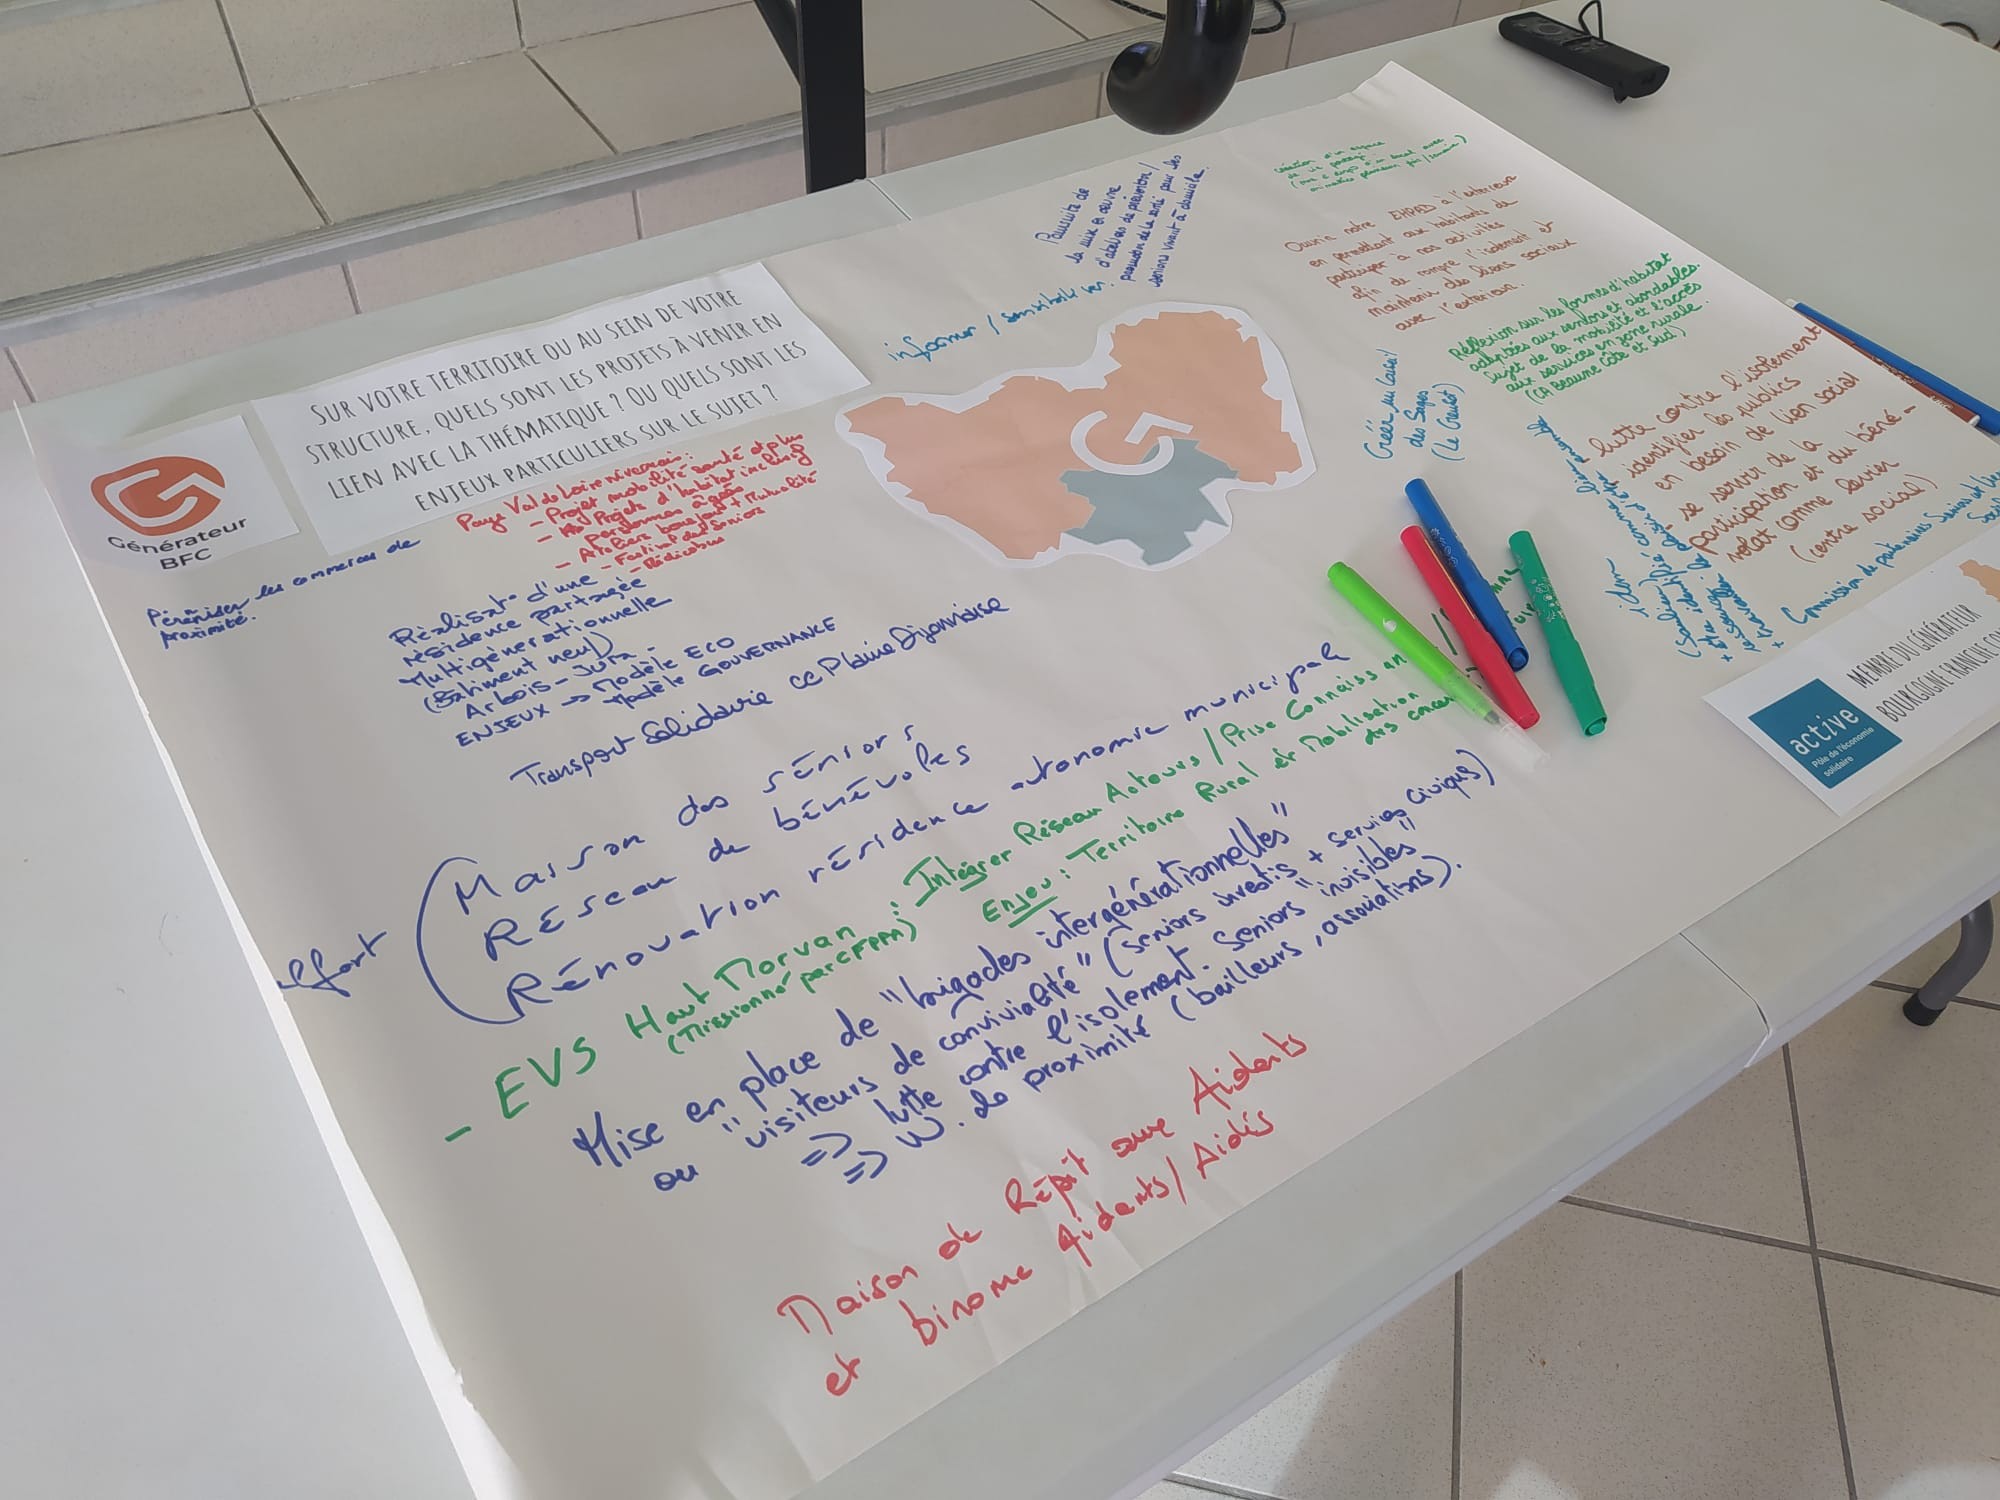 SUR VOTRE TERRITOIRE OU AU SEIN DE VOTRE
STRUCTURE, QUELS SONT LES PROJETS À VENIR EN
LIEN AVEC LA THÉMATIQUE ? OU QUELS SONT LES
ENJEUX PARTICULIERS SUR LE SUJET ?
Générateur
BFC
Pérénniser les commerces de
proximité.
Pays Val de Loire nivernais :
- Projet mobilité santé et plus
- Projets d'habitat inclusif
personnes âgées
- Ateliers bonjour + Mutualité
- Festival des Seniors
- Médicobus
Réalisat° d'une
résidence partagée
Multigénérationnelle
(Bâtiment neuf)
Arbois - Jura -
ENJEUX => Modèle ECO
Modèle GOUVERNANCE
Transport Solidaire CC Plaine Dijonnaise
Maison des séniors
Réseau de bénévoles
Rénovation résidence autonomie municipale
- EVS Haut Morvan : Intégrer Réseau Acteurs / Prise Connaissan
(Missionné par CFPPA) Enjeu : Territoire Rural et Mobilisation
des
Mise en place de "brigades intergénérationnelles"
ou "visiteurs de convivialité" (seniors investis + services civiques)
=> lutte contre l'isolement. Seniors "invisibles"
=> W. de proximité (bailleurs, associations).
Maison de Répit pour Aidants
et binome Aidants/Aidés
informer / sensibiliser
Poursuite de
la mise en œuvre
d'ateliers de prévention /
promotion de la santé pour les
seniors vivant à domicile.
création d'un espace
de vie partagé
Ouvrir notre EHPAD à l'extérieur
en permettant aux habitants de
participer à nos activités
afin de rompre l'isolement et
maintenir des liens sociaux
avec l'extérieur.
Réflexion sur les formes d'habitat
adaptées aux seniors et abordables.
Sujet de la mobilité et l'accès
aux services en zone rurale
(CA Beaune Côte et Sud)
Créer un Conseil
des Sages
(Le Creusot)
lutte contre l'isolement
identifier les publics
en besoin de lien social
- se servir de la
participation et du béné-
volat comme levier
(centre social)
idem
+ Commission de partenaires Seniors et
MEMBRE DU GÉNÉRATEUR
BOURGOGNE FRANCHE CO
active
Pôle de l'économie
solidaire